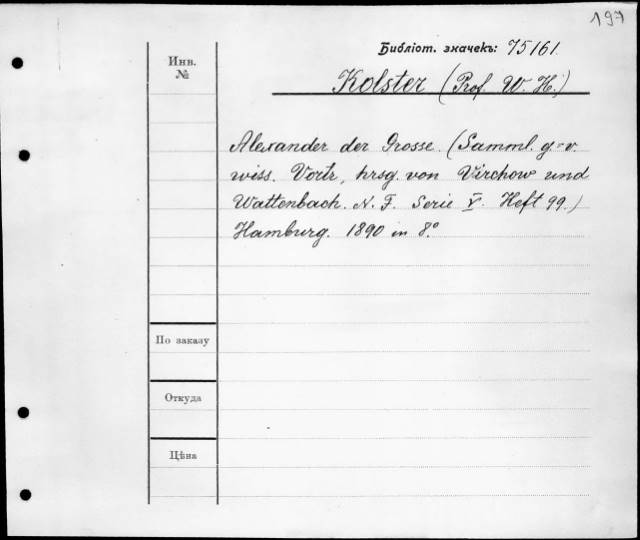 197
Библіот. значекъ: 75161.
Инв.
№
Kolster (Prof. W. H.)
Alexander der Grosse. (Samml. g=v.
wiss. Vortr, hrsg. von Virchow und
Wattenbach. N. F. Serie V. Heft 99.)
Hamburg. 1890 in 8.°
По заказу
Откуда
Цѣна